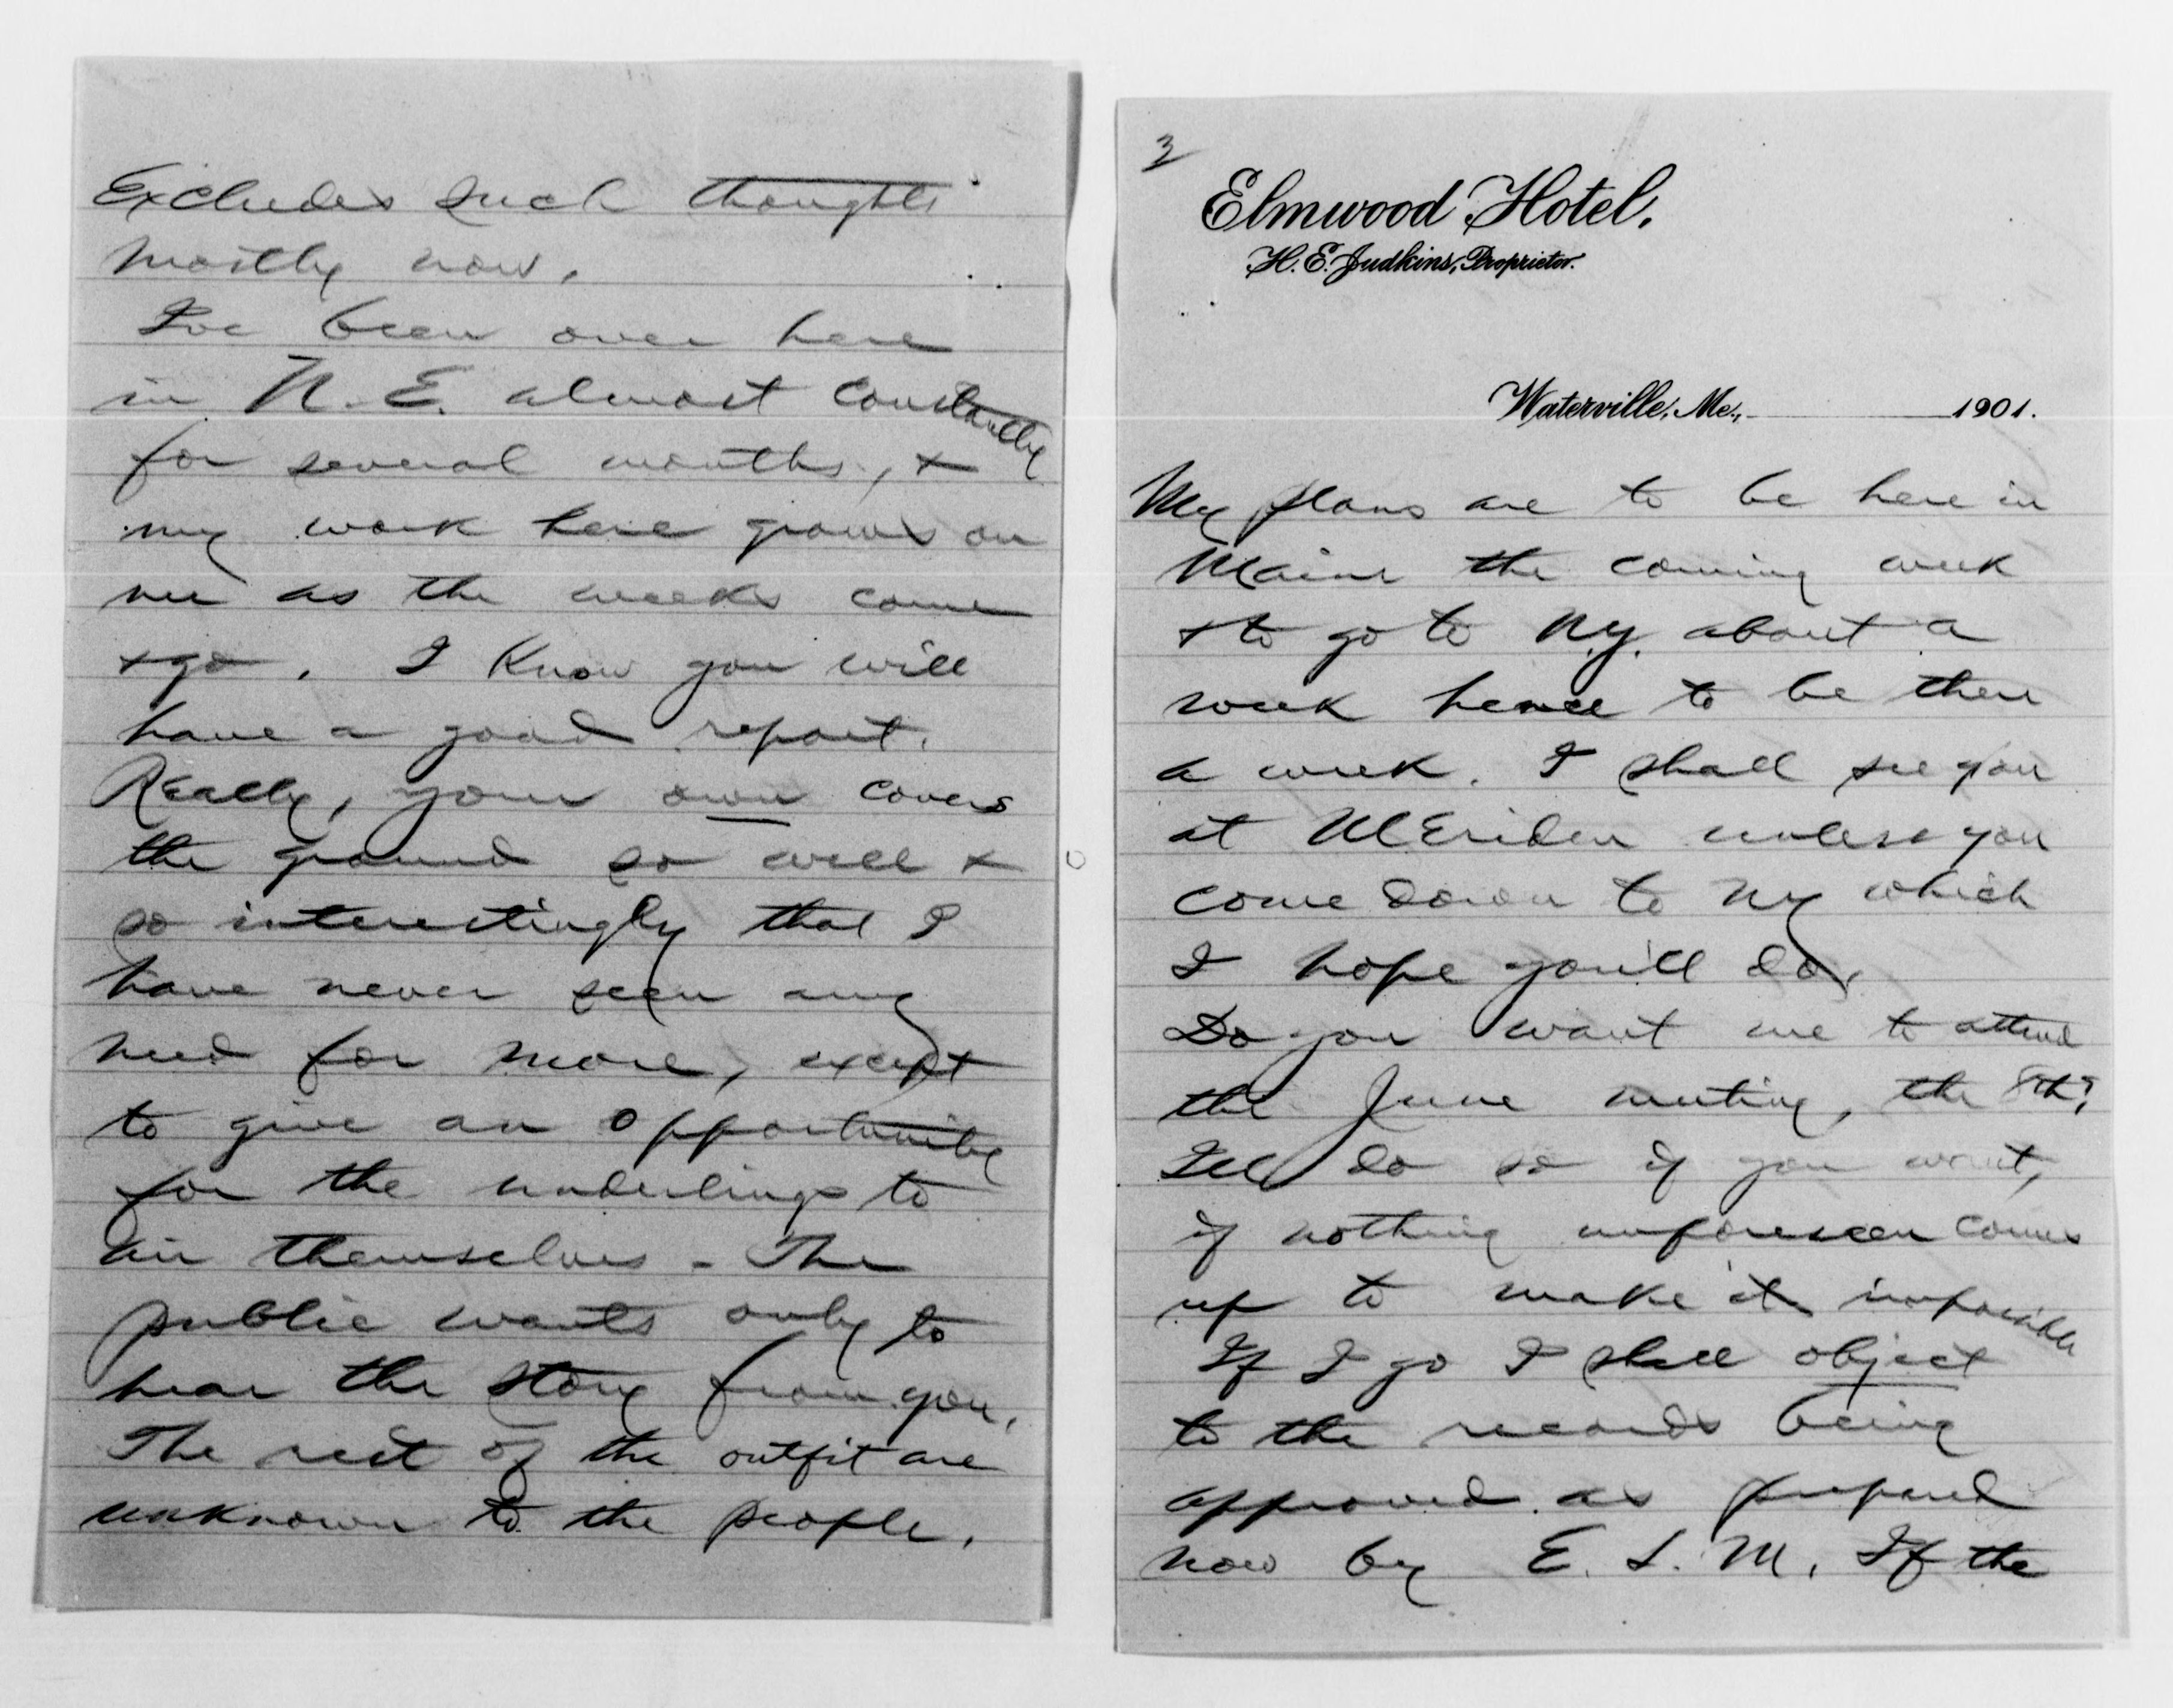 Excludes such thoughts
mostly now.
I've been over here
in N. E. almost constantly
for several months, +
my work here grows on
me as the weeks come
+ go. I know you will
have a good report.
Really, your own covers
the ground so well +
so interestingly that I
have never seen any
need for more, except
to give an opportunity
for the underlings to
air themselves - The
public wants only to
hear the story from you.
The rest of the outfit are
unknown to the people.
3
Elmwood Hotel.
H. E. Judkins, Proprietor.
Waterville, Me., 1901.
My plans are to be here in
Maine the coming week
+ to go to N.Y. about a
week hence to be there
a week. I shall see you
at Meriden unless you
come down to NY which
I hope you'll do.
Do you want me to attend
the June meeting, the 8th?
I'll do so if you want,
if nothing unforeseen comes
up to make it impossible
If I go I shall object
to the records being
approved as prepared
now by E. S. M. If the